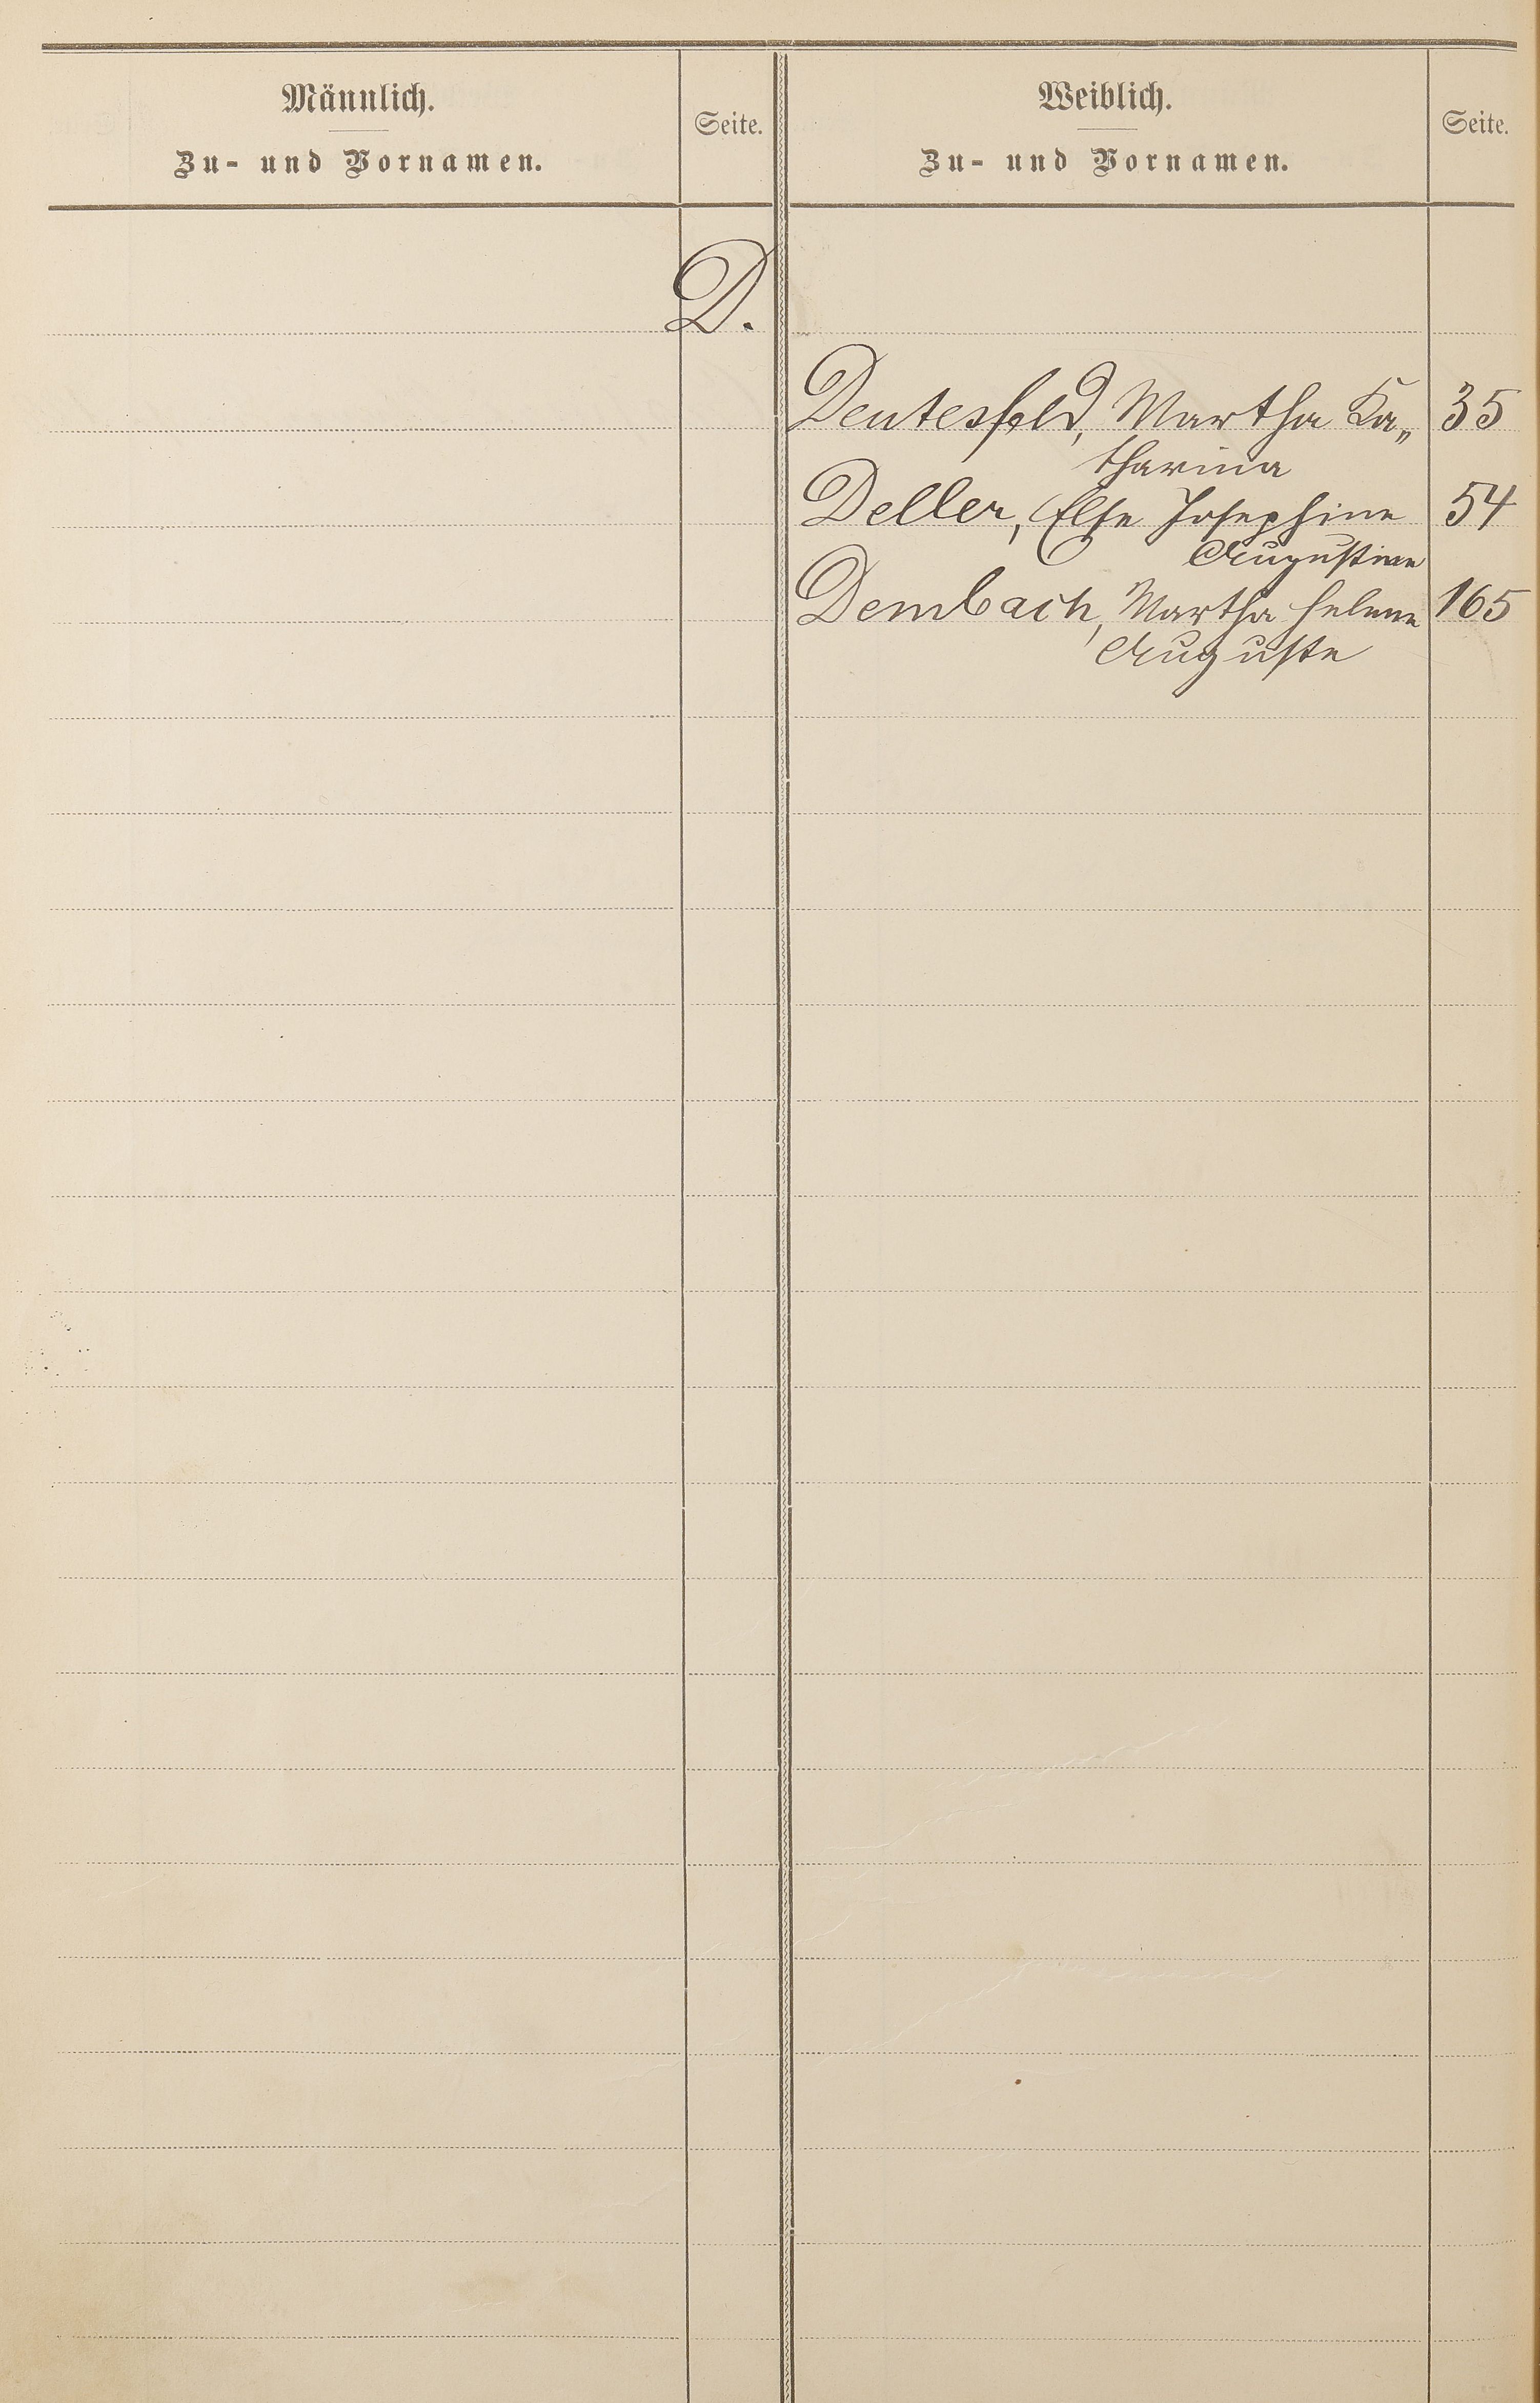 Männlich.
Zu- und Vornamen.
Seite.
Weiblich.
Zu- und Vornamen.
Seite.
D.
Deutesfeld, Martha Ka„ 35
tharina
Deller, Else Josephine 54
Augustine
Dembach, Martha Helene 165
Auguste